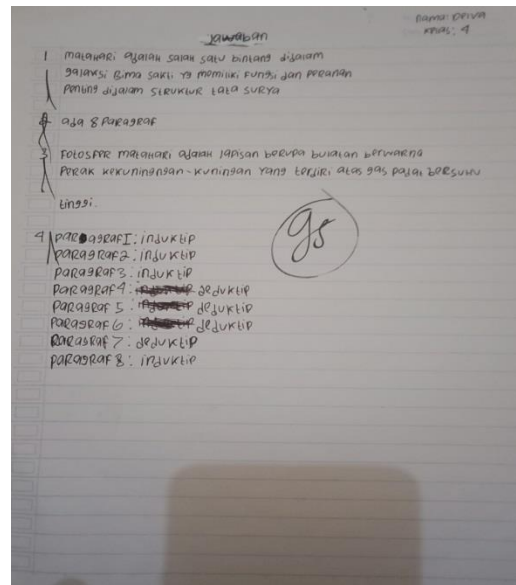 nama: Deiva
kelas: 4
Jawaban
1 matahari adalah salah satu bintang didalam
galaksi Bima sakti yg memiliki fungsi dan peranan
penting didalam struktur tata surya
2 ada 8 paragraf
3 Fotosfer matahari adalah lapisan berupa bulatan berwarna
perak kekuningngan-kuningan yang terdiri atas gas padat bersuhu
tinggi.
4 paragraf I: induktip
paragraf 2: induktip
paragraf 3: induktip
paragraf 4: deduktip
paragraf 5: deduktip
paragraf 6: deduktip
paragraf 7: deduktip
paragraf 8: induktip
95